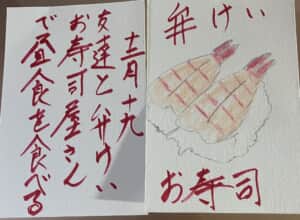 十二月十九
友達と弁けい
お寿司屋さん
で昼食を食べる
弁けい
お寿司